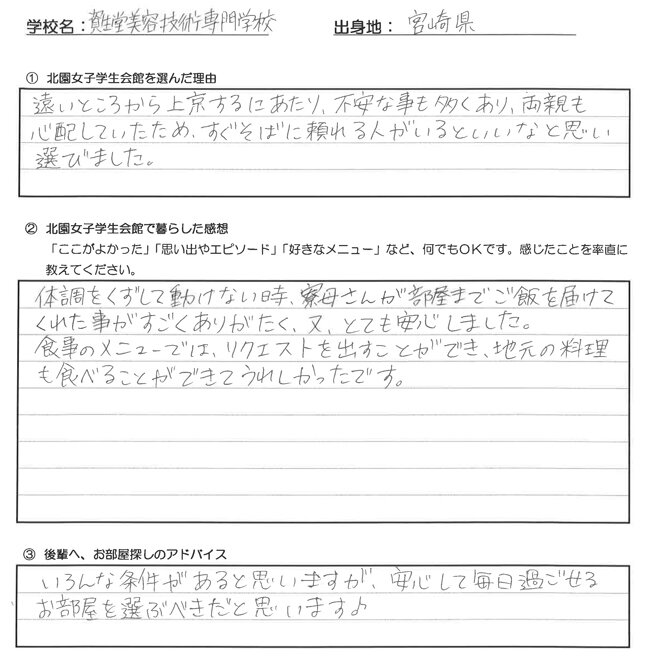 学校名：資生堂美容技術専門学校 出身地： 宮崎県
① 北園女子学生会館を選んだ理由
遠いところから上京するにあたり、不安な事も多くあり、両親も
心配していたため、すぐそばに頼れる人がいるといいなと思い
選びました。
② 北園女子学生会館で暮らした感想
「ここがよかった」「思い出やエピソード」「好きなメニュー」など、何でもOKです。感じたことを率直に
教えてください。
体調をくずして動けない時、寮母さんが部屋までご飯を届けて
くれた事がすごくありがたく、又、とても安心しました。
食事のメニューでは、リクエストを出すことができ、地元の料理
も食べることができてうれしかったです。
③ 後輩へ、お部屋探しのアドバイス
いろんな条件があると思いますが、安心して毎日過ごせる
お部屋を選ぶべきだと思います♪